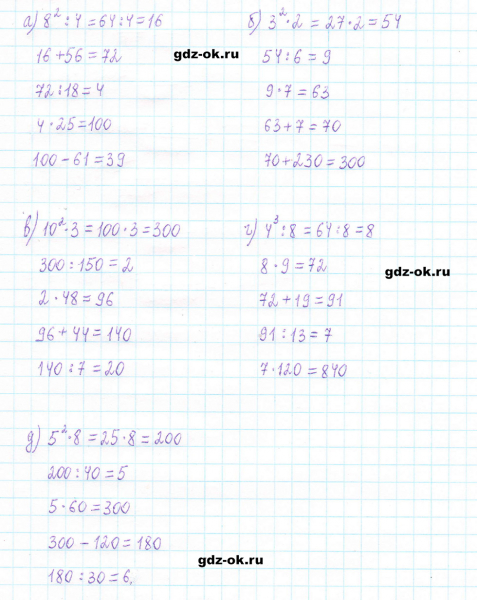 а) 8² : 4 = 64 : 4 = 16
16 + 56 = 72
72 : 18 = 4
4 · 25 = 100
100 - 61 = 39
б) 3² · 2 = 27 · 2 = 54
54 : 6 = 9
9 · 7 = 63
63 + 7 = 70
70 + 230 = 300
gdz-ok.ru
в) 10² · 3 = 100 · 3 = 300
300 : 150 = 2
2 · 48 = 96
96 + 44 = 140
140 : 7 = 20
г) 4³ : 8 = 64 : 8 = 8
8 · 9 = 72
72 + 19 = 91
91 : 13 = 7
7 · 120 = 840
gdz-ok.ru
д) 5² · 8 = 25 · 8 = 200
200 : 40 = 5
5 · 60 = 300
300 - 120 = 180
180 : 30 = 6.
gdz-ok.ru